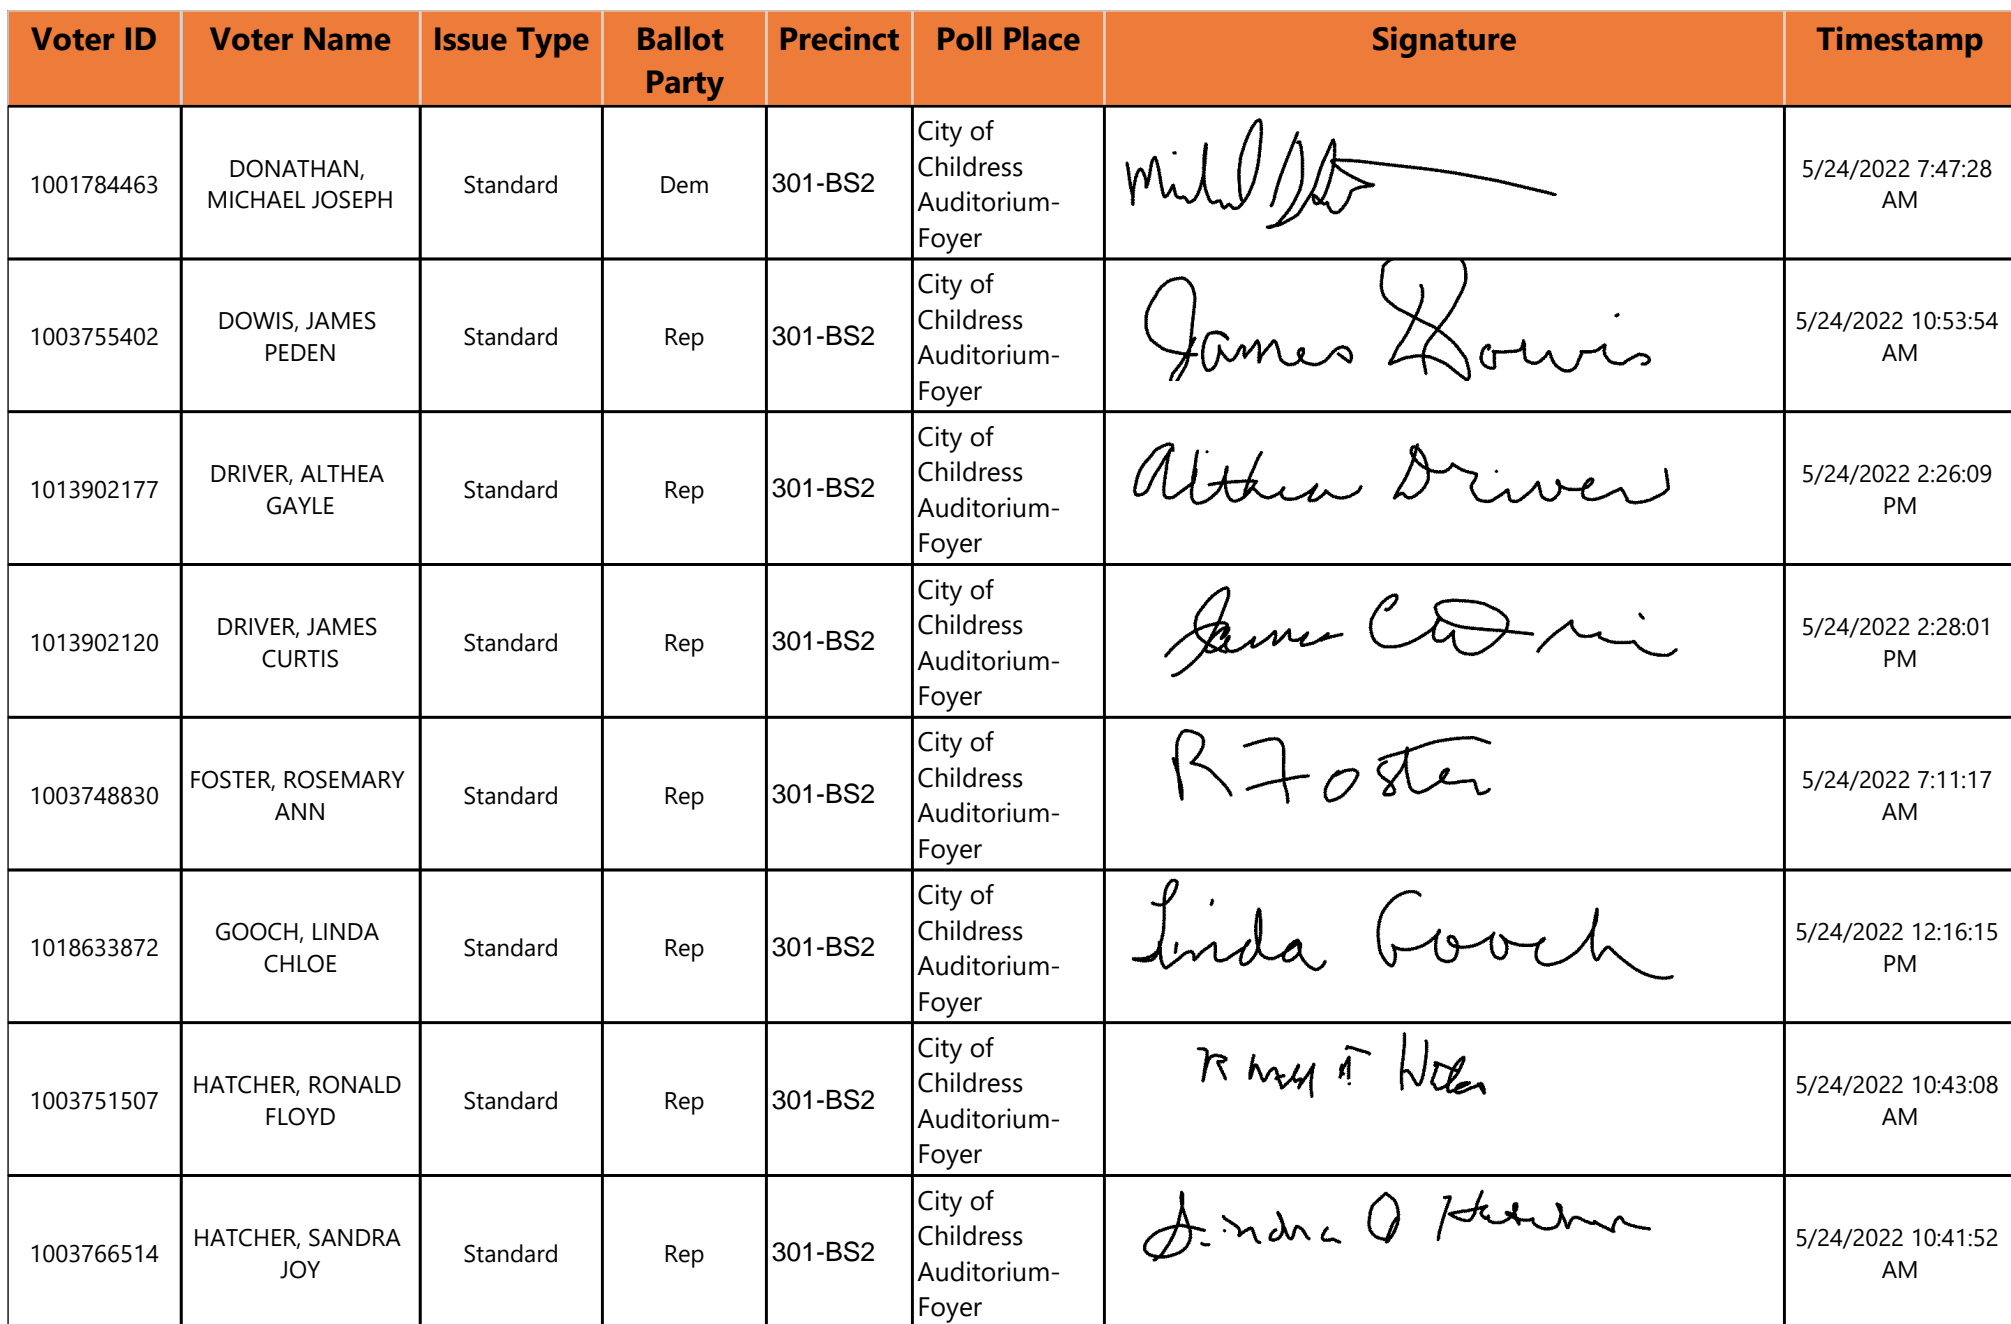 Voter ID Voter Name Issue Type Ballot Party Precinct Poll Place Signature Timestamp
1001784463 DONATHAN, MICHAEL JOSEPH Standard Dem 301-BS2 City of Childress Auditorium-Foyer 5/24/2022 7:47:28 AM
1003755402 DOWIS, JAMES PEDEN Standard Rep 301-BS2 City of Childress Auditorium-Foyer James Dowis 5/24/2022 10:53:54 AM
1013902177 DRIVER, ALTHEA GAYLE Standard Rep 301-BS2 City of Childress Auditorium-Foyer Althea Driver 5/24/2022 2:26:09 PM
1013902120 DRIVER, JAMES CURTIS Standard Rep 301-BS2 City of Childress Auditorium-Foyer James 5/24/2022 2:28:01 PM
1003748830 FOSTER, ROSEMARY ANN Standard Rep 301-BS2 City of Childress Auditorium-Foyer R Foster 5/24/2022 7:11:17 AM
1018633872 GOOCH, LINDA CHLOE Standard Rep 301-BS2 City of Childress Auditorium-Foyer Linda Gooch 5/24/2022 12:16:15 PM
1003751507 HATCHER, RONALD FLOYD Standard Rep 301-BS2 City of Childress Auditorium-Foyer 5/24/2022 10:43:08 AM
1003766514 HATCHER, SANDRA JOY Standard Rep 301-BS2 City of Childress Auditorium-Foyer Sandra J Hatcher 5/24/2022 10:41:52 AM